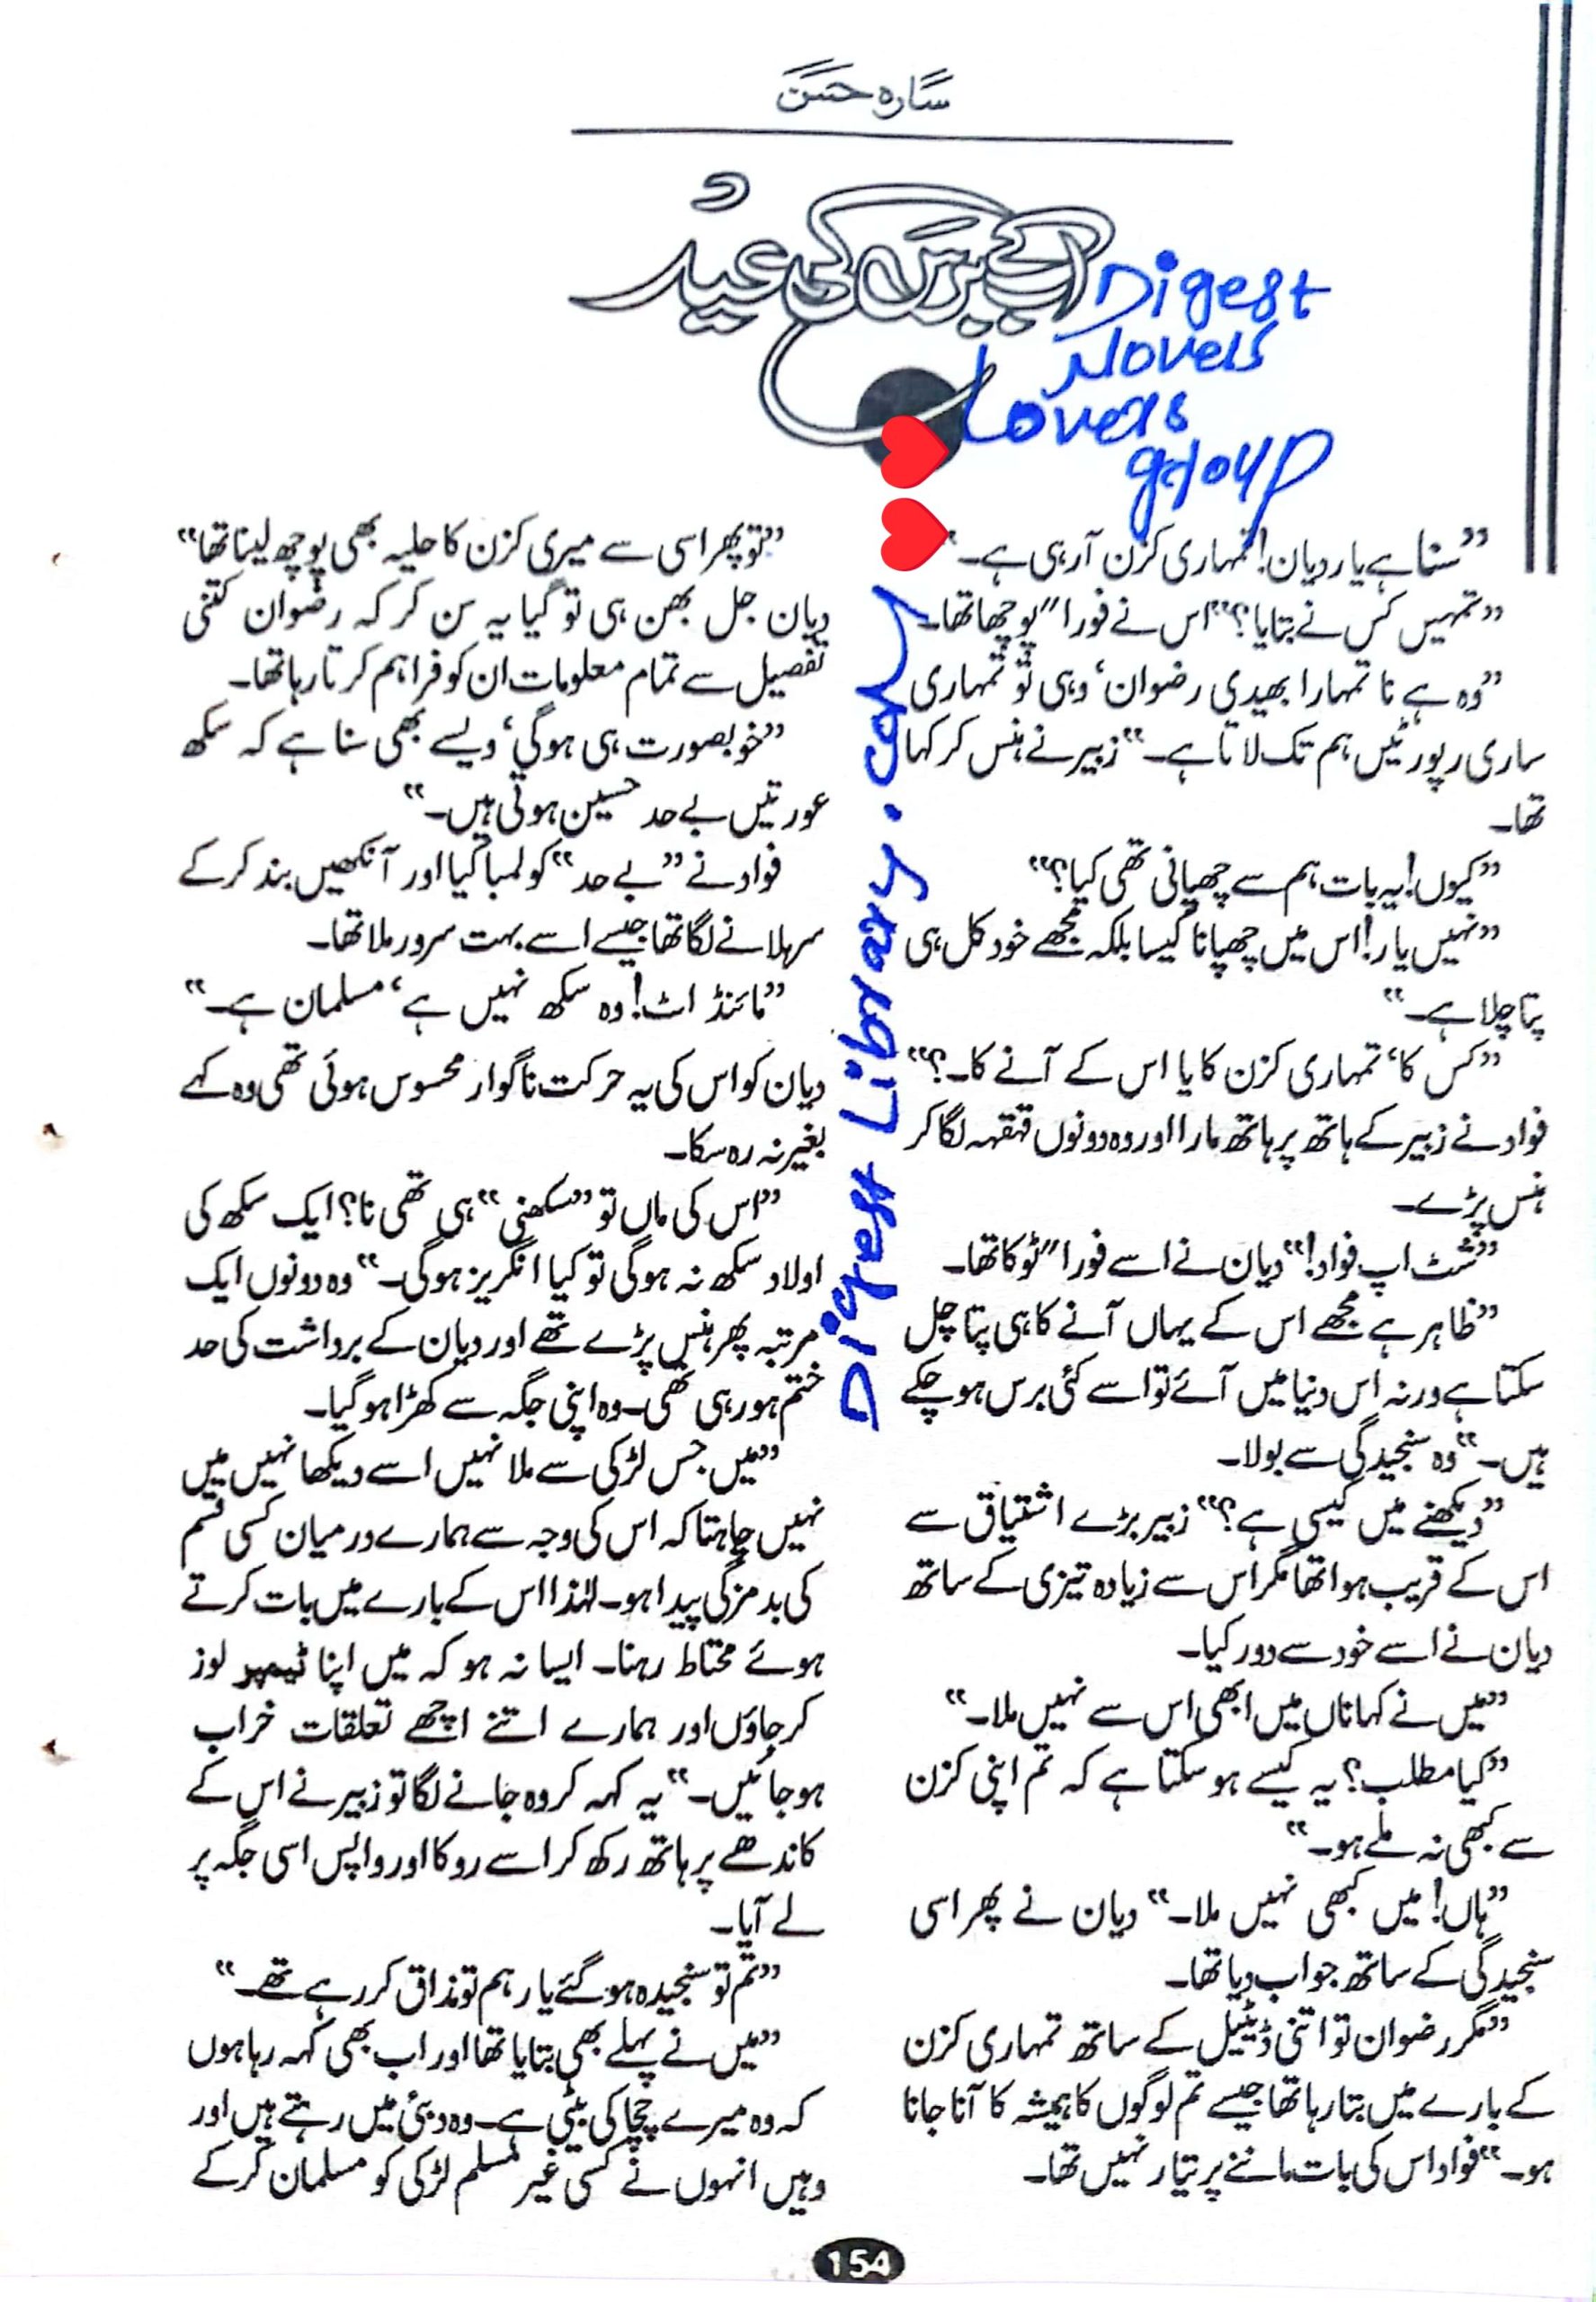 سارہ حسن
اب کے برس کی عید
Digest
Novels
Lovers
group
”سنا ہے یار دیان! تمہاری کزن آرہی ہے۔“
”تمہیں کس نے بتایا؟“ اس نے فوراً پوچھا تھا۔
”وہ ہے نا تمہارا بھیدی رضوان‘ وہی تو تمہاری
ساری رپورٹیں ہم تک لاتا ہے۔“ زبیر نے ہنس کر کہا
تھا۔
”کیوں! یہ بات ہم سے چھپانی تھی کیا؟“
”نہیں یار! اس میں چھپانا کیسا بلکہ مجھے خود کل ہی
پتا چلا ہے۔“
”کس کا‘ تمہاری کزن کا یا اس کے آنے کا۔؟“
فواد نے زبیر کے ہاتھ پر ہاتھ مارا اور وہ دونوں قہقہہ لگا کر
ہنس پڑے۔
”شٹ اپ فواد!“ دیان نے اسے فوراً ٹوکا تھا۔
”ظاہر ہے مجھے اس کے یہاں آنے کا ہی پتا چل
سکتا ہے ورنہ اس دنیا میں آئے تو اسے کئی برس ہو چکے
ہیں۔“ وہ سنجیدگی سے بولا۔
”دیکھنے میں کیسی ہے؟“ زبیر بڑے اشتیاق سے
اس کے قریب ہوا تھا مگر اس سے زیادہ تیزی کے ساتھ
دیان نے اسے خود سے دور کیا۔
”میں نے کہا ناں میں ابھی اس سے نہیں ملا۔“
”کیا مطلب؟ یہ کیسے ہو سکتا ہے کہ تم اپنی کزن
سے کبھی نہ ملے ہو۔“
”ہاں! میں کبھی نہیں ملا۔“ دیان نے پھر اسی
سنجیدگی کے ساتھ جواب دیا تھا۔
”مگر رضوان تو اتنی ڈیٹیل کے ساتھ تمہاری کزن
کے بارے میں بتا رہا تھا جیسے تم لوگوں کا ہمیشہ کا آنا جانا
ہو۔“ فواد اس کی بات ماننے پر تیار نہیں تھا۔
Digest Library.com
”تو پھر اسی سے میری کزن کا حلیہ بھی پوچھ لینا تھا“
دیان جل بھن ہی تو گیا یہ سن کر کہ رضوان کتنی
تفصیل سے تمام معلومات ان کو فراہم کرتا رہا تھا۔
”خوبصورت ہی ہوگی‘ ویسے بھی سنا ہے کہ سکھ
عورتیں بے حد حسین ہوتی ہیں۔“
فواد نے ”بے حد“ کو لمبا کیا اور آنکھیں بند کرکے
سہلانے لگا تھا جیسے اسے بہت سرور ملا تھا۔
”مائنڈ اٹ! وہ سکھ نہیں ہے‘ مسلمان ہے۔“
دیان کو اس کی یہ حرکت ناگوار محسوس ہوئی تھی وہ کہے
بغیر نہ رہ سکا۔
”اس کی ماں تو ”سکھنی“ ہی تھی نا؟ ایک سکھ کی
اولاد سکھ نہ ہوگی تو کیا انگریز ہوگی۔“ وہ دونوں ایک
مرتبہ پھر ہنس پڑے تھے اور دیان کے برداشت کی حد
ختم ہو رہی تھی۔ وہ اپنی جگہ سے کھڑا ہوگیا۔
”میں جس لڑکی سے ملا نہیں اسے دیکھا نہیں میں
نہیں چاہتا کہ اس کی وجہ سے ہمارے درمیان کسی قسم
کی بدمزگی پیدا ہو۔ لہٰذا اس کے بارے میں بات کرتے
ہوئے محتاط رہنا۔ ایسا نہ ہو کہ میں اپنا ٹیمپر لوز
کرجاؤں اور ہمارے اتنے اچھے تعلقات خراب
ہوجائیں۔“ یہ کہہ کر وہ جانے لگا تو زبیر نے اس کے
کاندھے پر ہاتھ رکھ کر اسے روکا اور واپس اسی جگہ پر
لے آیا۔
”تم تو سنجیدہ ہوگئے یار ہم تو مذاق کررہے تھے۔“
”میں نے پہلے بھی بتایا تھا اور اب بھی کہہ رہا ہوں
کہ وہ میرے چچا کی بیٹی ہے۔ وہ دبئی میں رہتے ہیں اور
وہیں انہوں نے کسی غیر مسلم لڑکی کو مسلمان کرکے
154